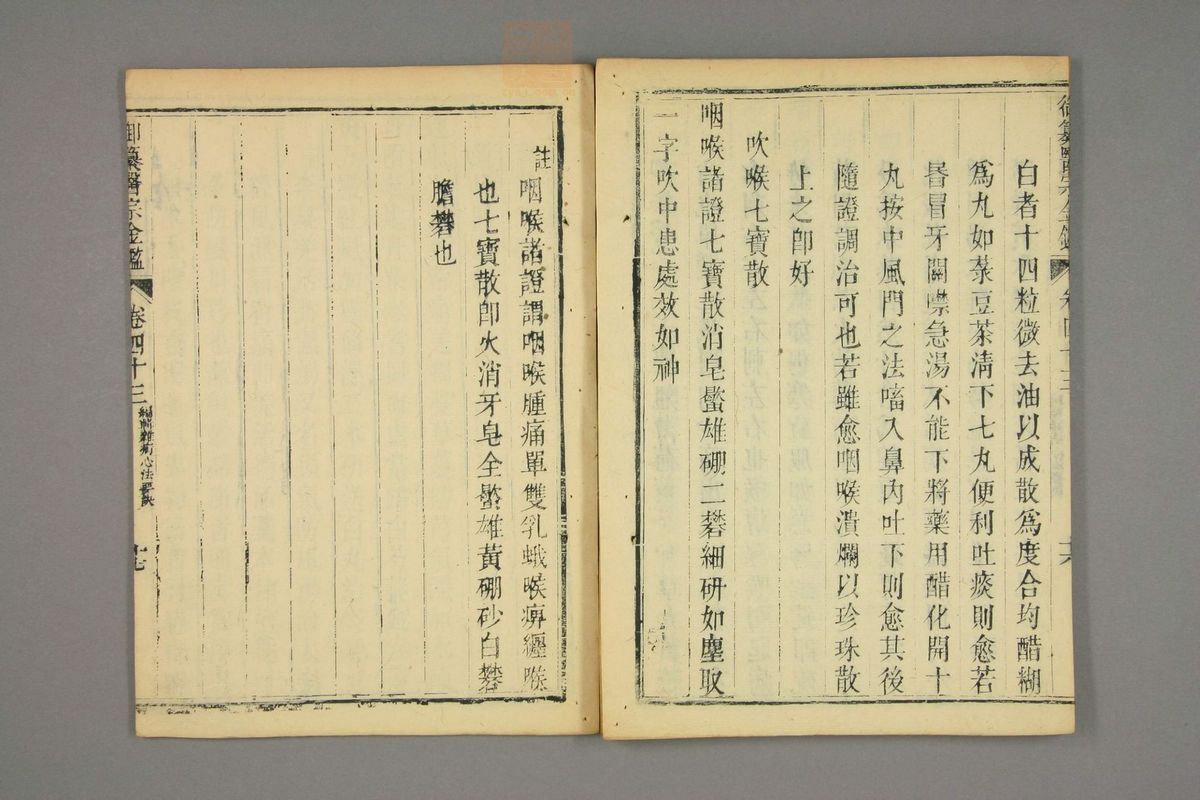 白者十四粒微去油以成散爲度合均醋糊
爲丸如菉豆茶清下七丸便利吐痰則愈若
昬冒牙關噤急湯不能下將藥用醋化開十
丸按中風門之法㗜入鼻內吐下則愈其後
隨證調治可也若雖愈咽喉潰爛以珍珠散
上之卽好
吹喉七寶散
咽喉諸證七寶散消皂蠍雄硼二礬細研如塵取
一字吹中患處效如神
註咽喉諸證謂咽喉腫痛單雙乳蛾喉痹纏喉
也七寶散卽火消牙皂全蠍雄黃硼砂白礬
膽礬也
御纂醫宗金鑑 卷四十三 編輯雜病心法要訣